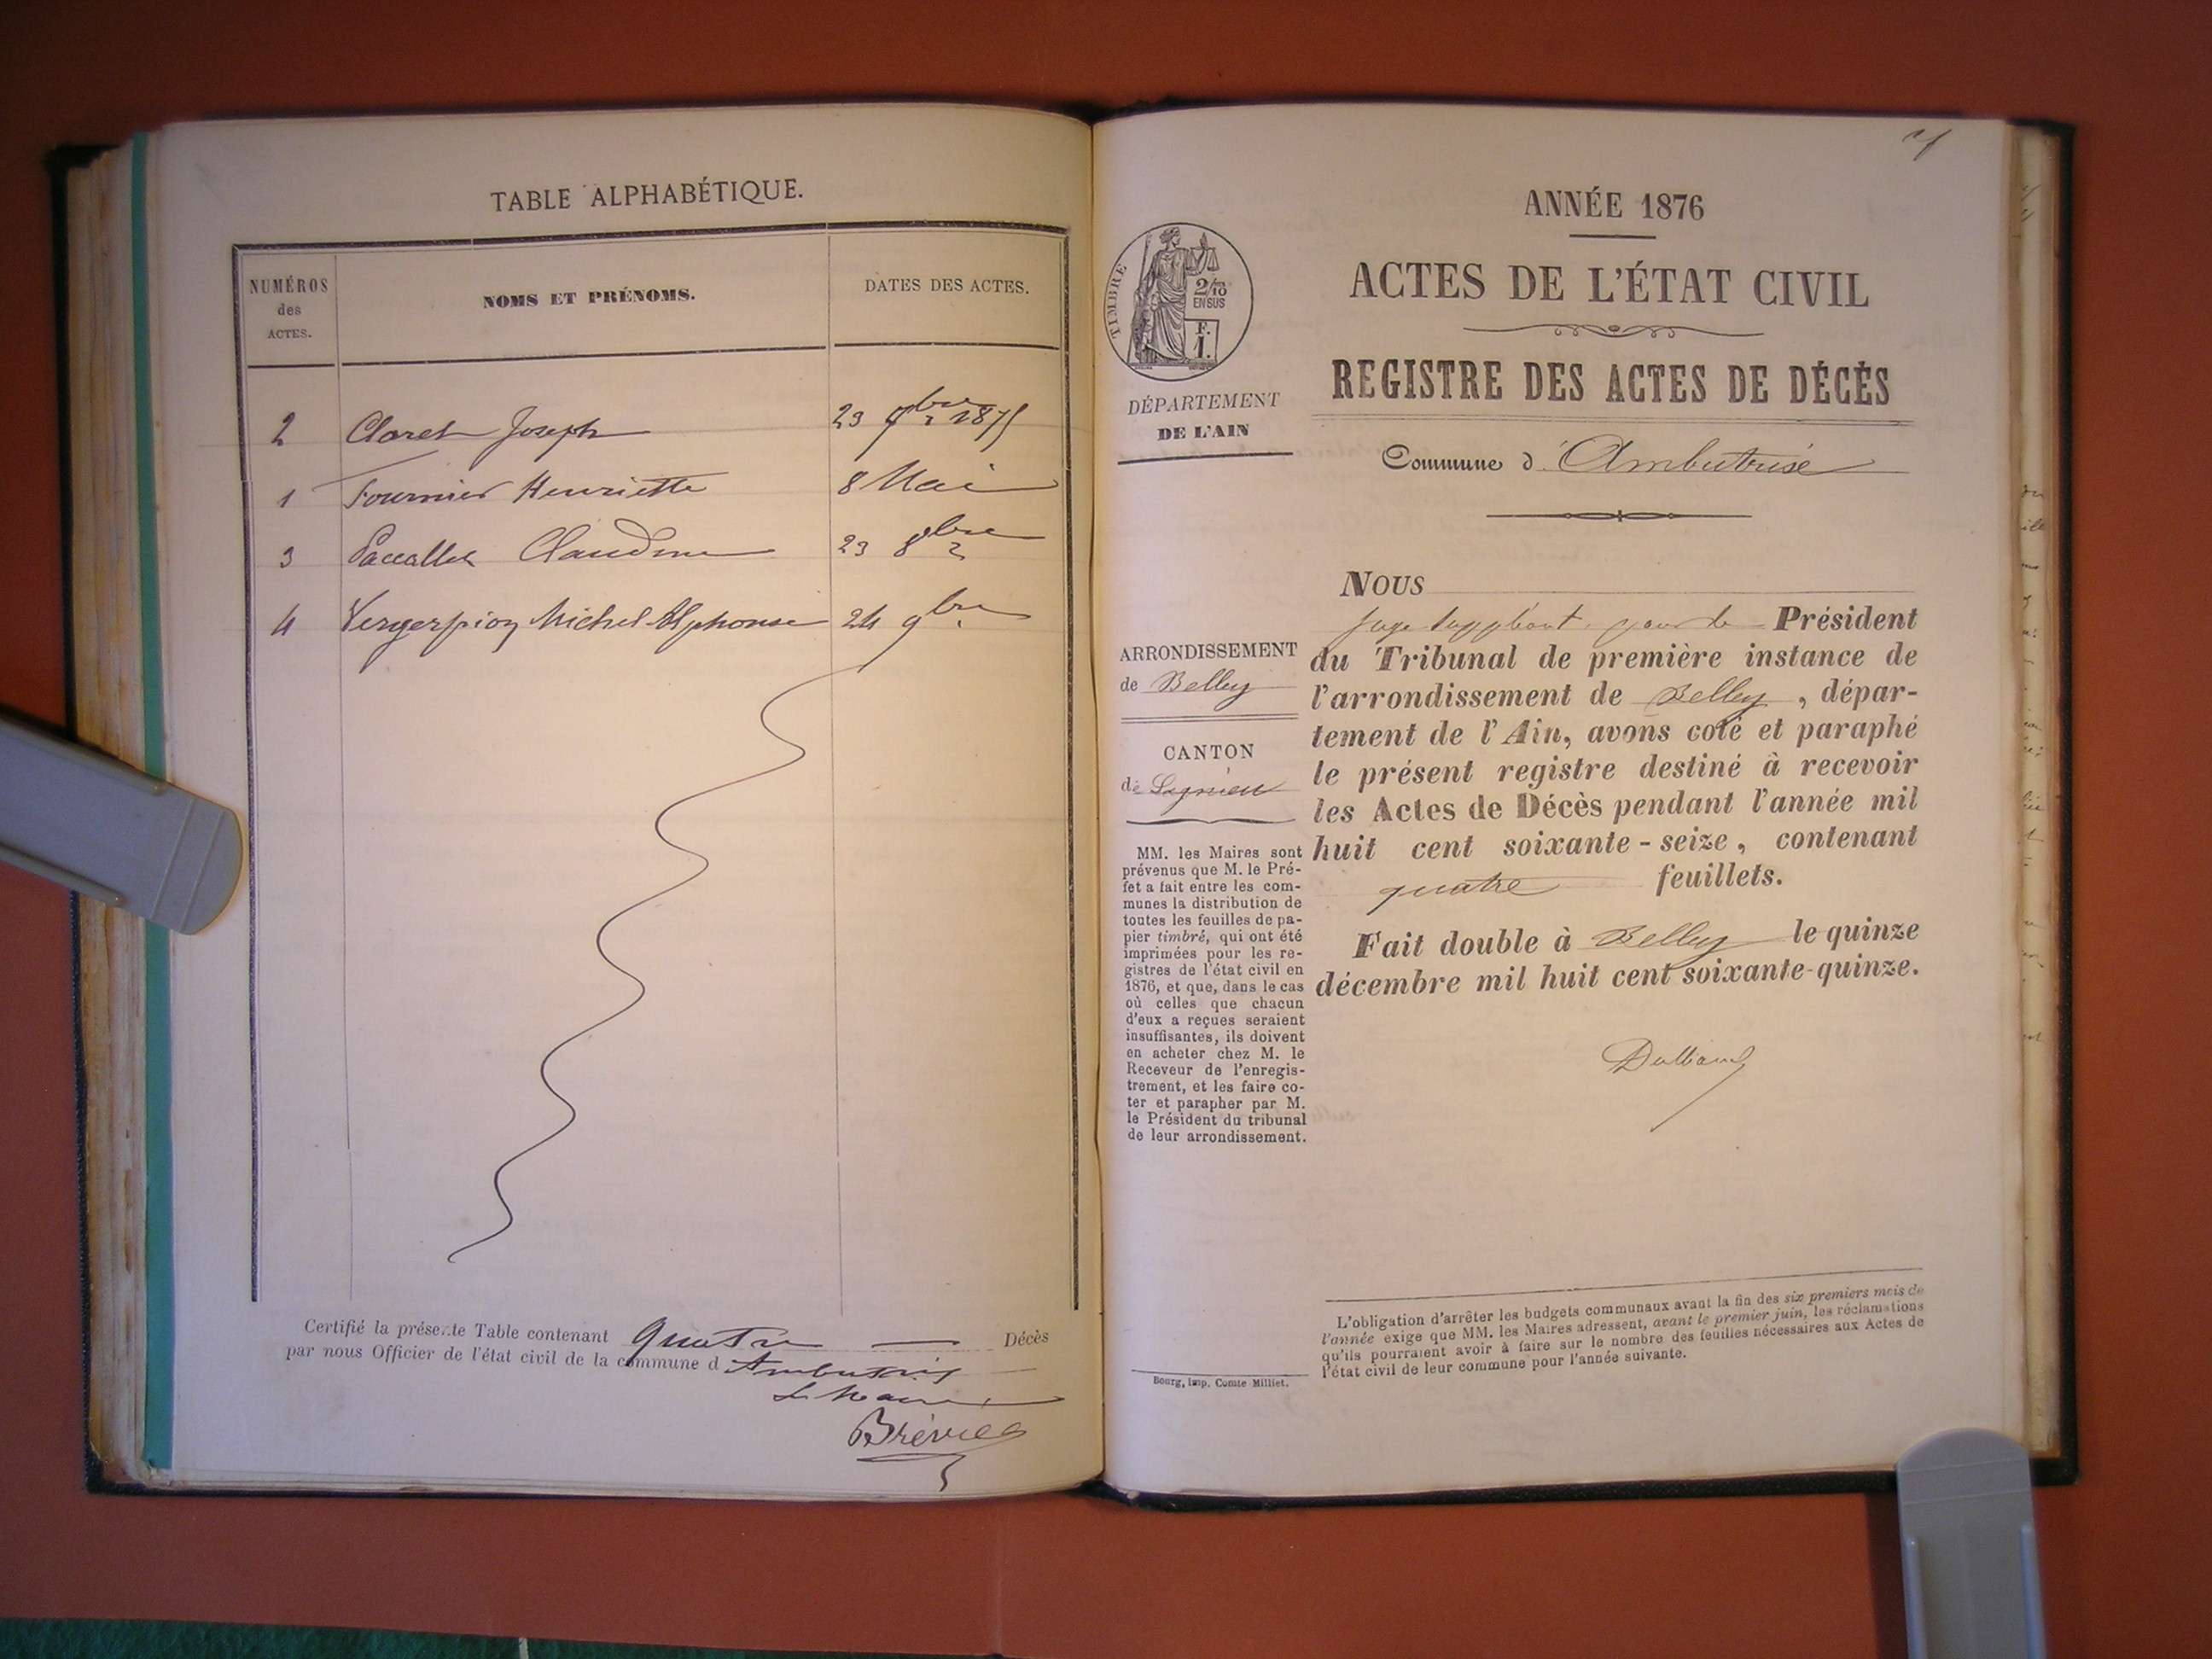 TABLE ALPHABÉTIQUE.
NUMÉROS des ACTES.
NOMS ET PRÉNOMS.
DATES DES ACTES.
2 Claret Joseph 23 7bre 1875
1 Fournier Henriette 8 Mai
3 Paccallet Claudine 23 8bre
4 Vergerpion Michel Alphonse 24 9bre
Certifié la présente Table contenant Quatre Décès
par nous Officier de l'état civil de la commune d Ambutrix
Le Maire
ANNÉE 1876
ACTES DE L'ÉTAT CIVIL
REGISTRE DES ACTES DE DÉCÈS
Commune d'Ambutrix
TIMBRE
2/10
EN SUS
F.
1.
DÉPARTEMENT
DE L'AIN
ARRONDISSEMENT
de Belley
CANTON
de Lagnieu
MM. les Maires sont
prévenus que M. le Pré-
fet a fait entre les com-
munes la distribution de
toutes les feuilles de pa-
pier timbré, qui ont été
imprimées pour les re-
gistres de l'état civil en
1876, et que, dans le cas
où celles que chacun
d'eux a reçues seraient
insuffisantes, ils doivent
en acheter chez M. le
Receveur de l'enregis-
trement, et les faire co-
ter et parapher par M.
le Président du tribunal
de leur arrondissement.
Bourg, imp. Comte-Milliet.
NOUS
Juge suppléant pour le Président
du Tribunal de première instance de
l'arrondissement de Belley, dépar-
tement de l'Ain, avons coté et paraphé
le présent registre destiné à recevoir
les Actes de Décès pendant l'année mil
huit cent soixante-seize, contenant
quatre feuillets.
Fait double à Belley le quinze
décembre mil huit cent soixante-quinze.
L'obligation d'arrêter les budgets communaux avant la fin des six premiers mois de
l'année exige que MM. les Maires adressent, avant le premier juin, les réclamations
qu'ils pourraient avoir à faire sur le nombre des feuilles nécessaires aux Actes de
l'état civil de leur commune pour l'année suivante.